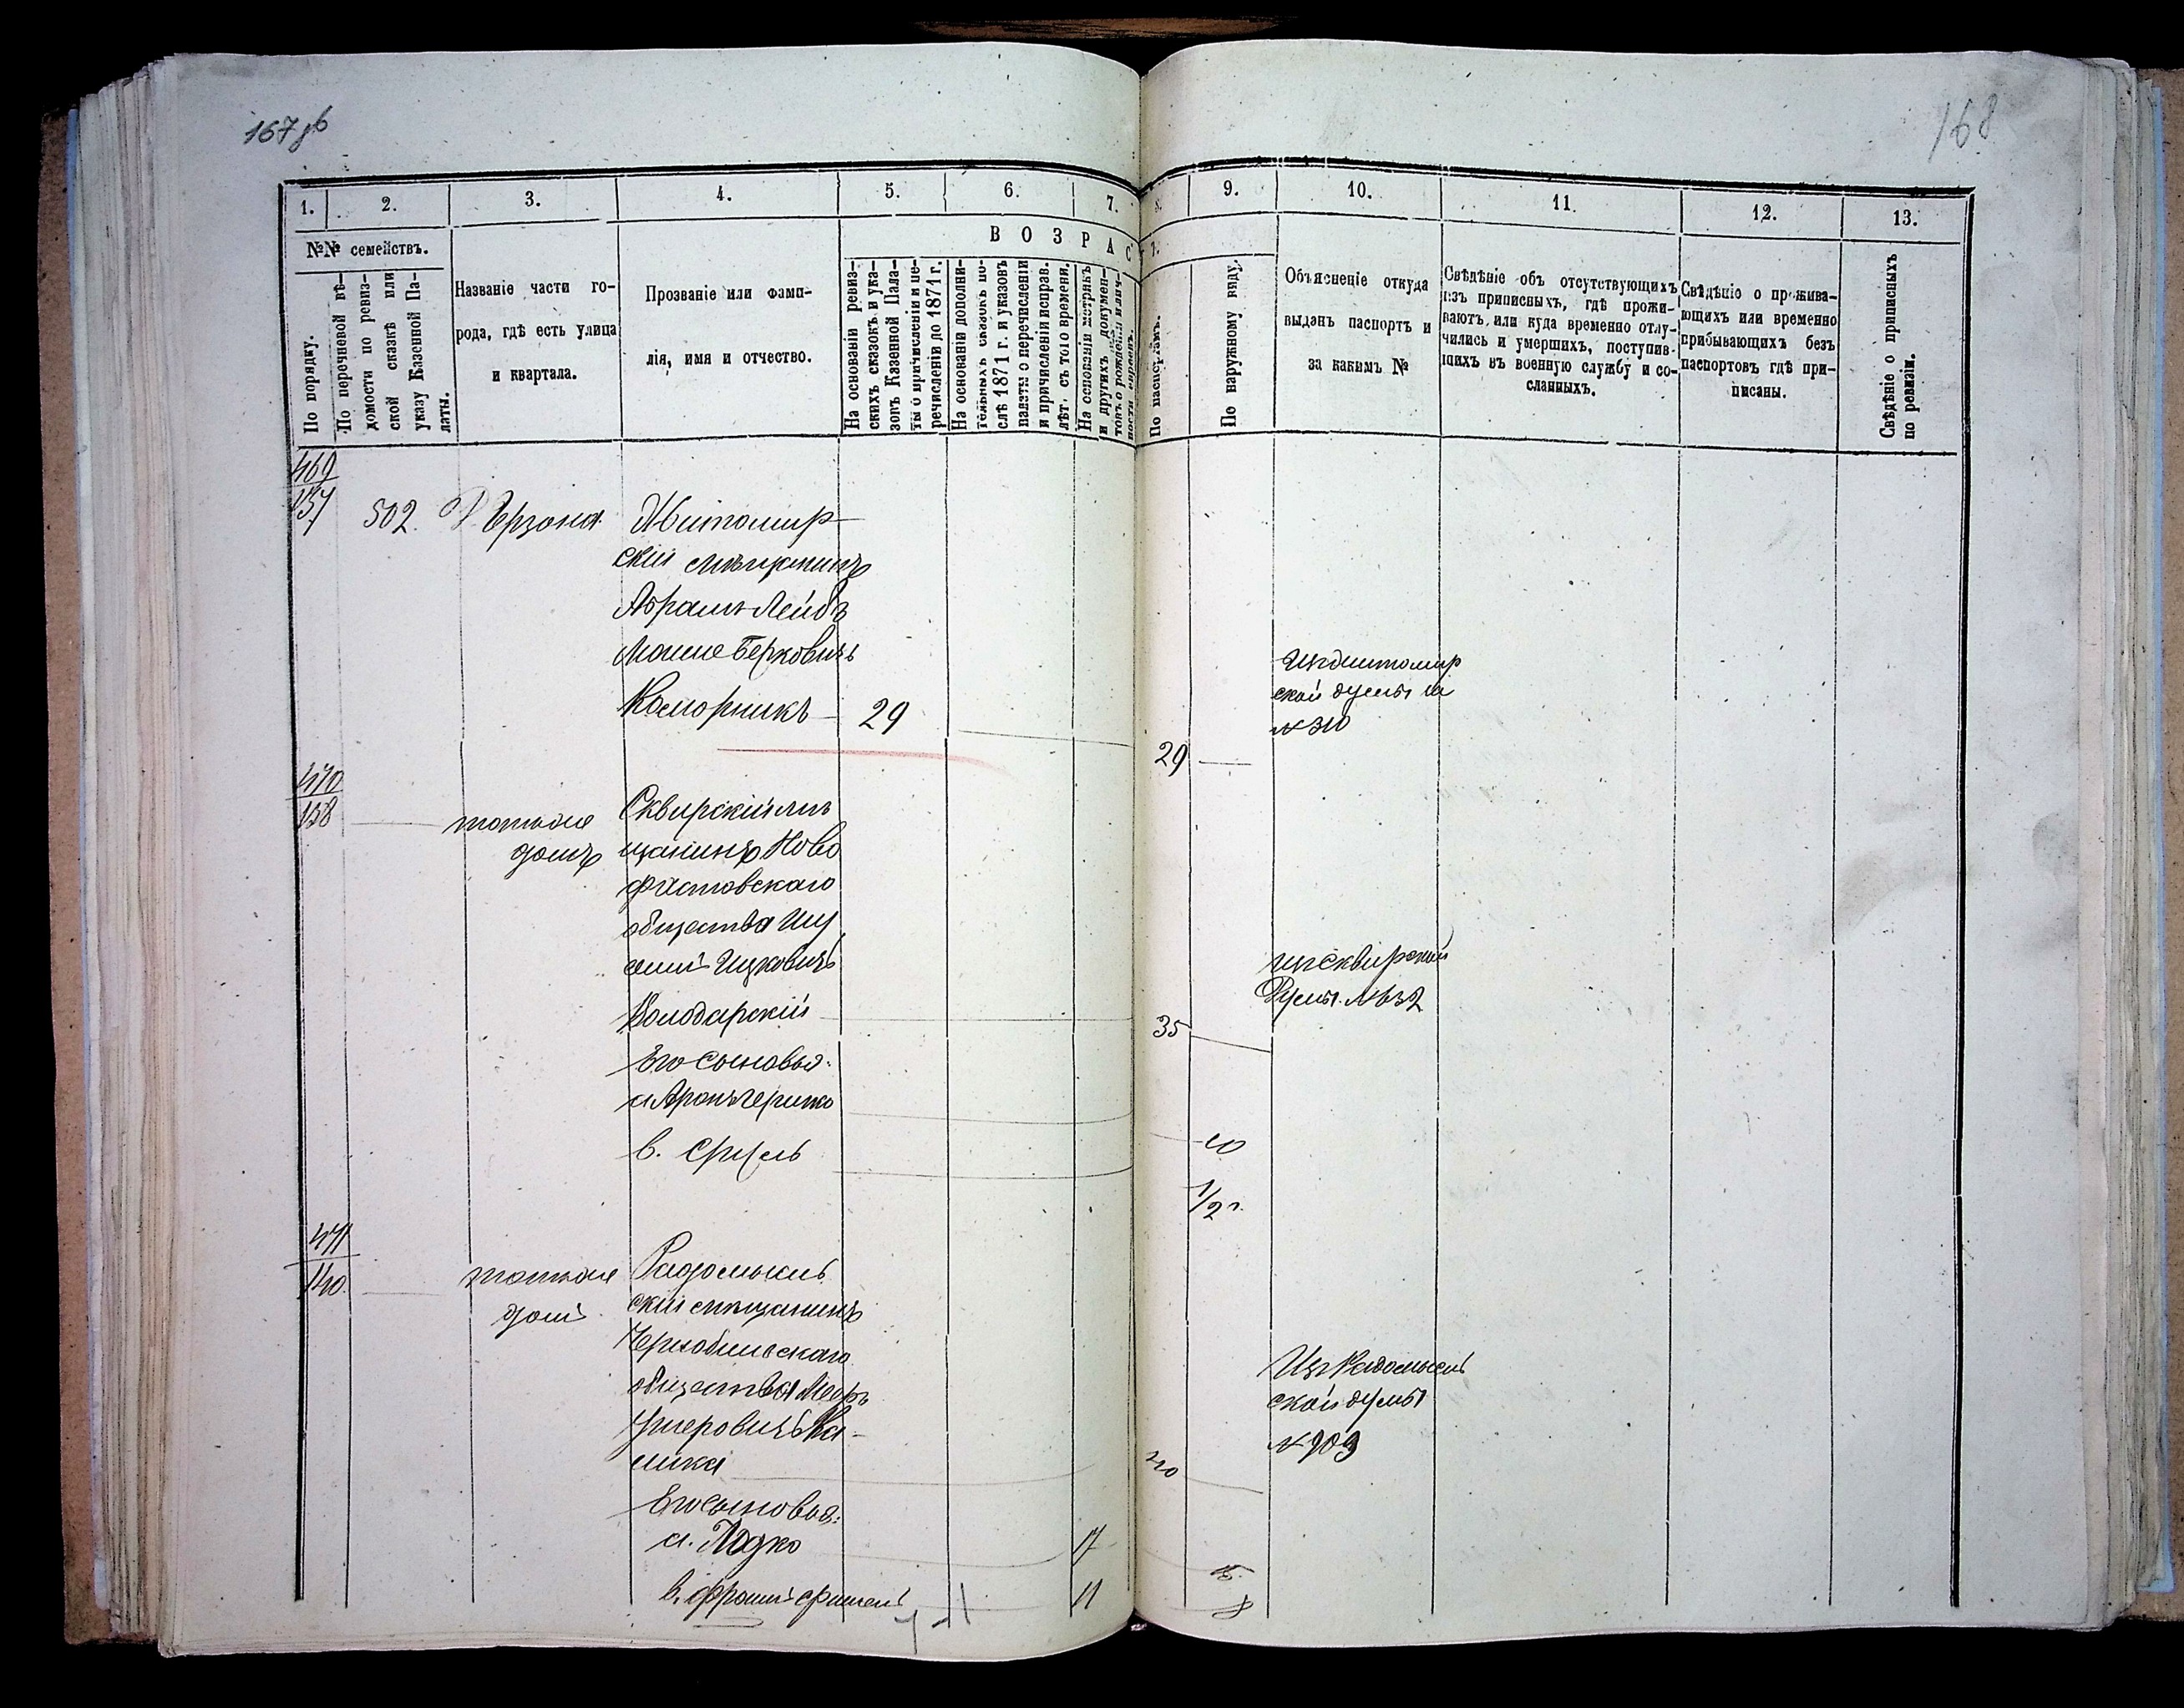 167 об
168
1. 2. 3. 4. 5. 6. 7.
№№ семействъ.
В О З Р А С
По порядку.
По перечневой вѣ-
домости по ревиз-
ской сказкѣ или
указу Казенной Па-
латы.
Названіе части го-
рода, гдѣ есть улица
и квартала.
Прозваніе или фами-
лія, имя и отчество.
На основаніи ревиз-
скихъ сказокъ и ука-
зовъ Казенной Пала-
ты о причисленіи и пе-
речисленіи до 1871 г.
На основаніи дополни-
тельныхъ сказокъ по-
слѣ 1871 г. и указовъ
палаты о перечисленіи
и причисленіи исправ.
лѣт. съ того времени.
На основаніи метрикъ
и другихъ докумен-
товъ о рожденіи
9. 10. 11. 12. 13.
По паспортамъ.
По наружному виду.
Объясненіе откуда
выданъ паспортъ и
за какимъ №
Свѣдѣніе объ отсутствующихъ
изъ приписныхъ, гдѣ прожи-
ваютъ, или куда временно отлу-
чились и умершихъ, поступив-
шихъ въ военную службу и со-
сланныхъ.
Свѣдѣніе о прожива-
ющихъ или временно
прибывающихъ безъ
паспортовъ гдѣ при-
писаны.
Свѣдѣніе о приписныхъ
по ревизіи.
469
137 502. Житомир-
скій мѣщанинъ
Абрамъ Лейбъ
Мошие Берковичъ
Коморникъ 29
29
Житомир
ской думы
№ 310
470
138 тотъ же Сквирскій мѣ
домъ щанинъ Ново
фастовскаго
общества
Ицковичъ
Володарскій 35
Сквирской
Думы. № 632
Его сыновья:
а Аронъ Гершко 10
в. Сруль
1/2 г.
471
140. тотъ же Радомысль
домъ скій мѣщанинъ
Чернобыльскаго
общества Мееръ
Ушеровичъ Ка-
40
Изъ Радомысль
ской думы
№ 909
Его сыновья:
а. Юдко 17
в. 11